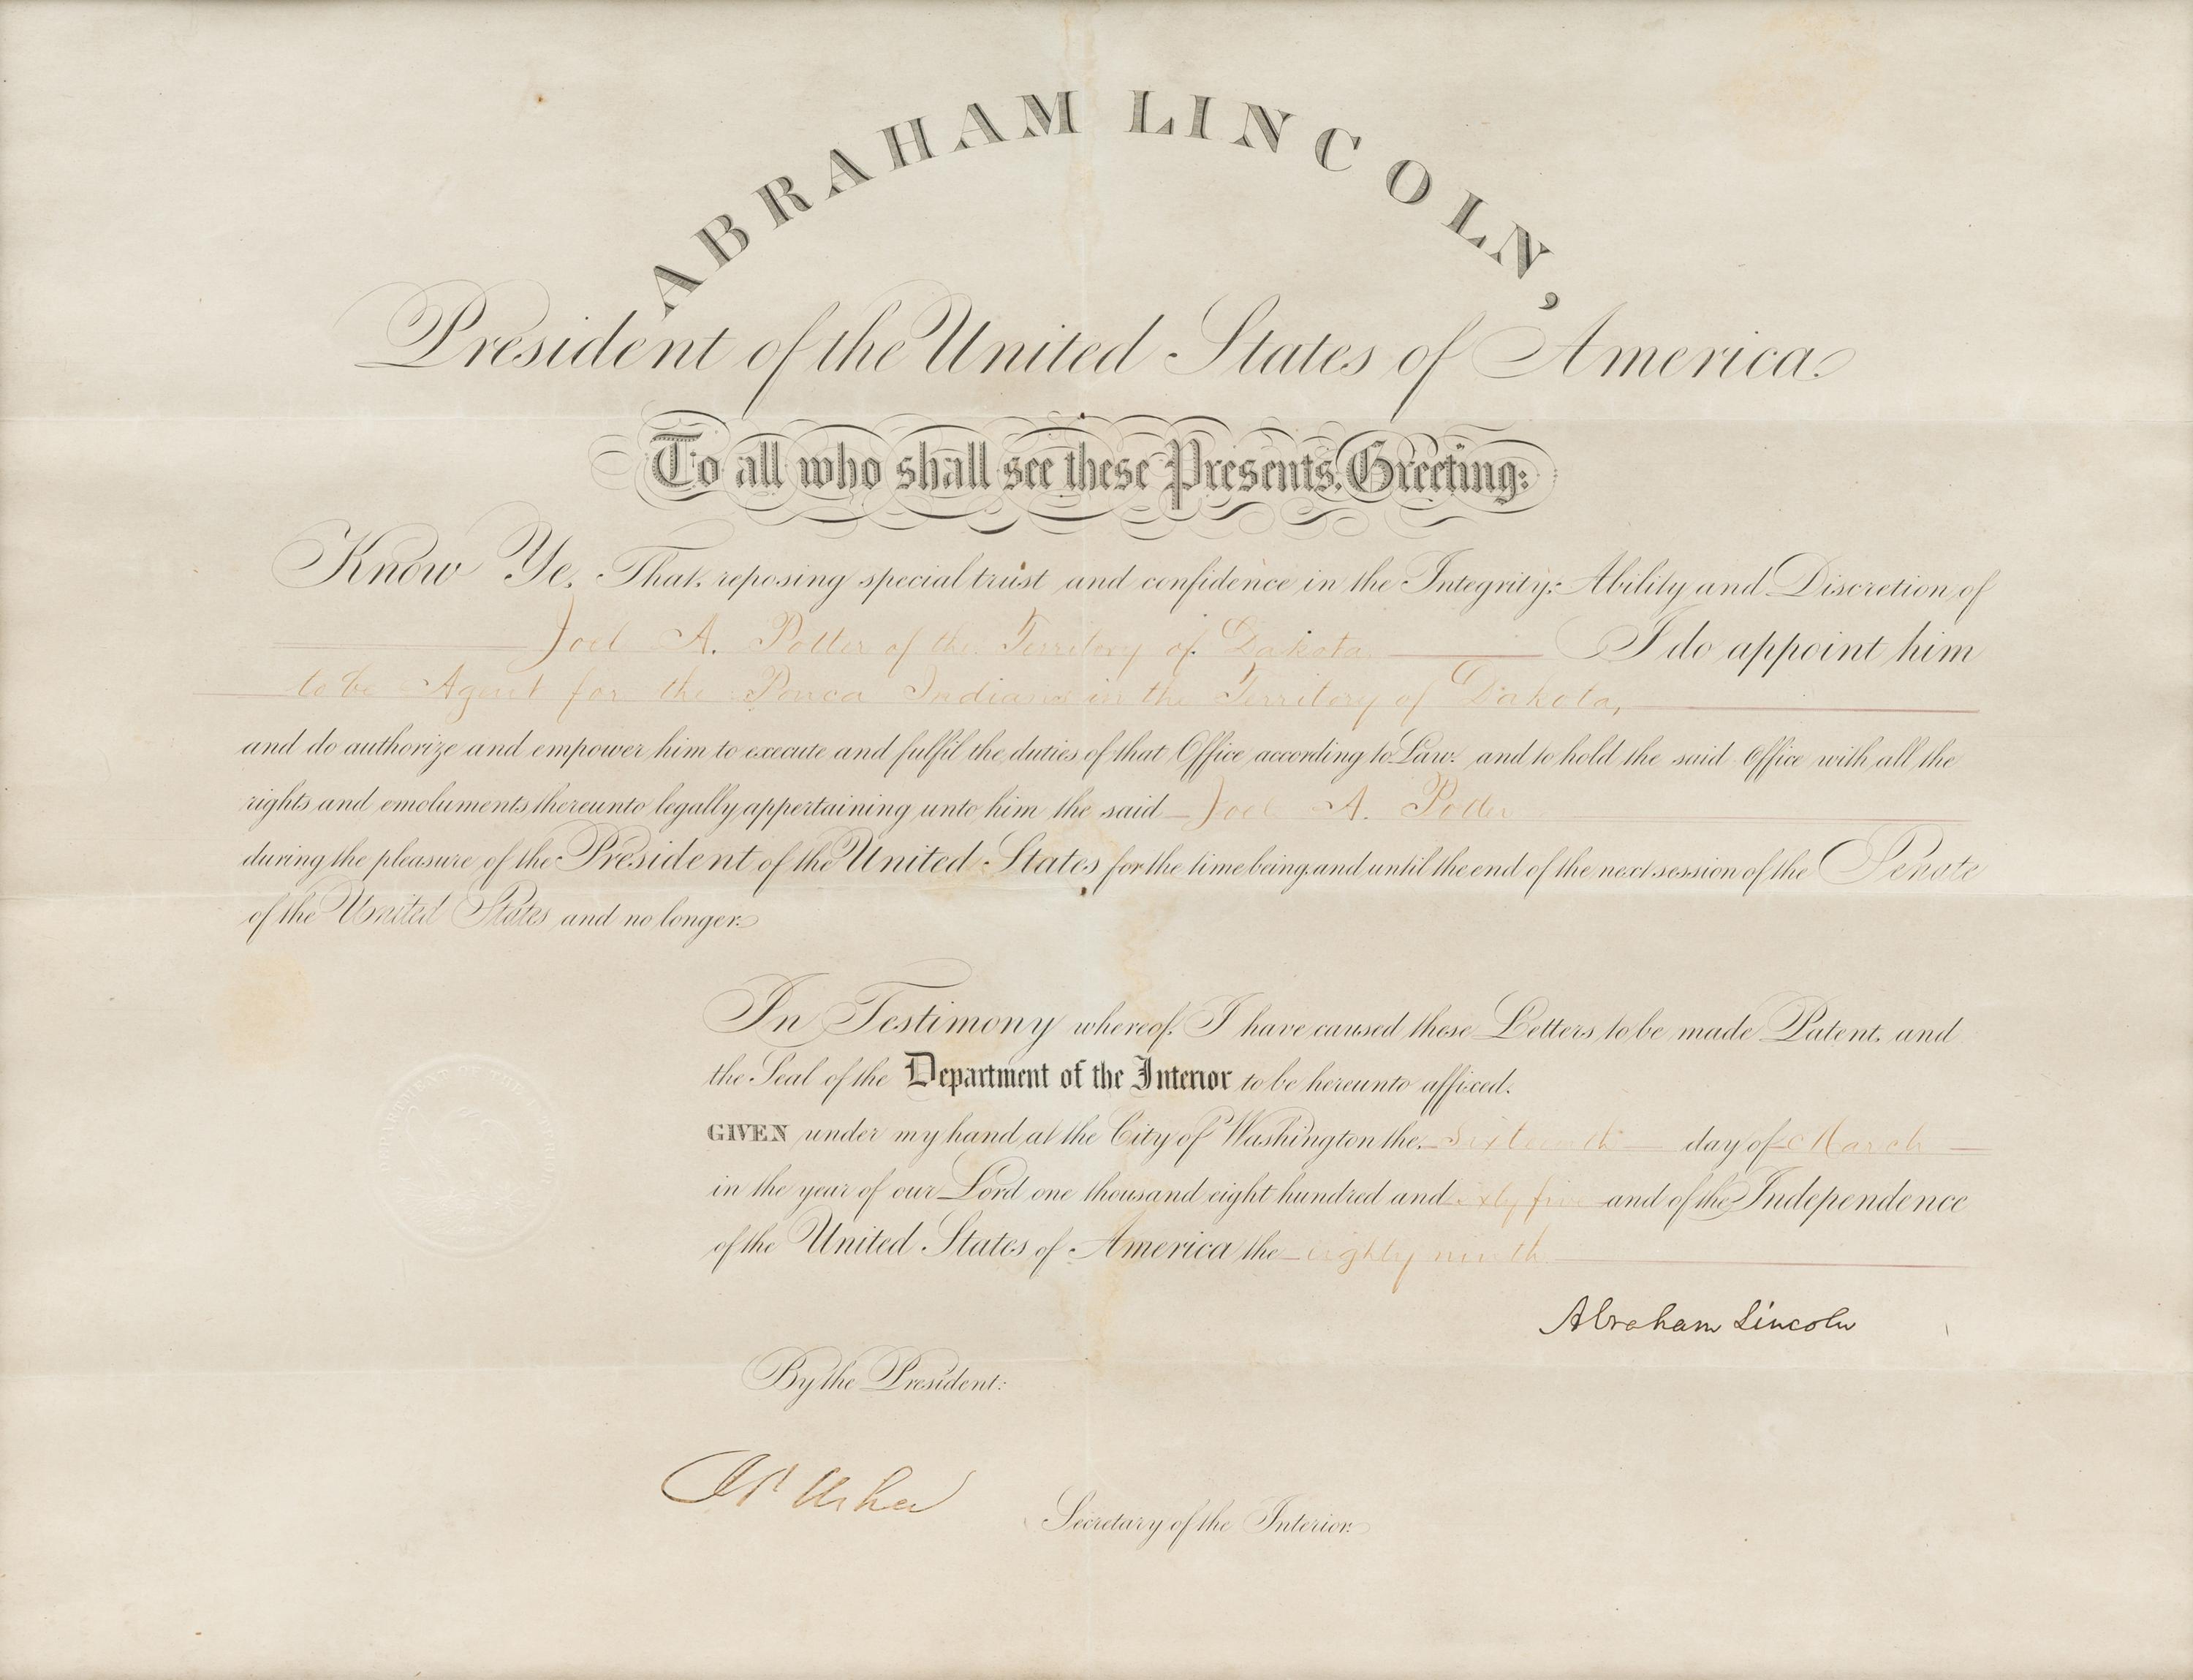 ABRAHAM LINCOLN,
President of the United States of America.
To all who shall see these Presents, Greeting:
Know Ye, That, reposing special trust and confidence in the Integrity, Ability and Discretion of
Joel A. Potter of the Territory of Dakota I do appoint him
to be Agent for the Ponca Indians in the Territory of Dakota,
and do authorize and empower him to execute and fulfil the duties of that Office according to Law: and to hold the said Office with all the
rights and emoluments thereunto legally appertaining unto him the said Joel A. Potter
during the pleasure of the President of the United States for the time being, and until the end of the next session of the Senate
of the United States and no longer.
In Testimony whereof, I have caused these Letters to be made Patent, and
the Seal of the Department of the Interior to be hereunto affixed.
GIVEN under my hand at the City of Washington the sixteenth day of March
in the year of our Lord one thousand eight hundred and sixty five and of the Independence
of the United States of America the eighty ninth.
Abraham Lincoln
By the President:
J P Usher
Secretary of the Interior.